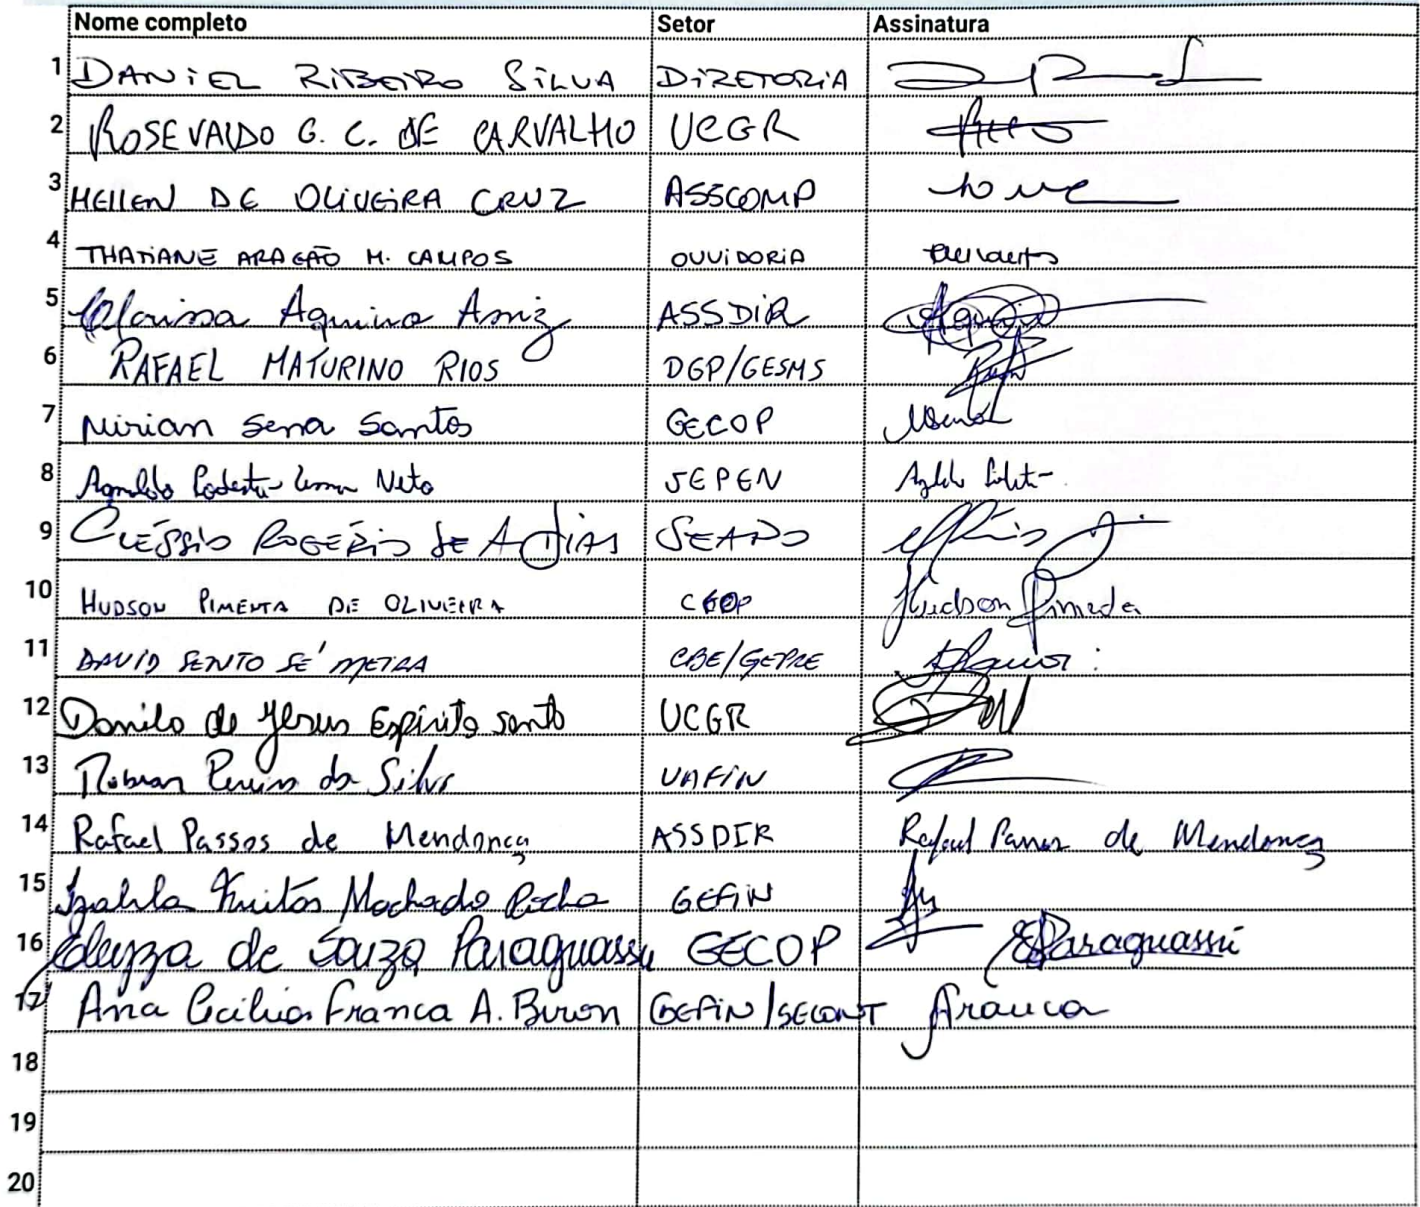 Nome completo Setor Assinatura
1 DANIEL RIBEIRO SILVA DIRETORIA
2 ROSEVALDO G. C. DE CARVALHO UCGR
3 HELLEN DE OLIVEIRA CRUZ ASSCOMP
4 THATIANE ARAGÃO M. CAMPOS OUVIDORIA
5 Clarissa Aquino Assiz ASSDIR Aquino
6 RAFAEL MATURINO RIOS DGP/GESMS
7 Mirian Sena Santos GECOP
8 Agnaldo Neto SEPEN
9 CLÉSSIO ROGÉRIO DE A DIAS SEADO
10 HUDSON PIMENTA DE OLIVEIRA Hudson Pimenta
11 DAVID SENTO SÉ MEIRA CBE/GEPRE
12 Danilo de Jesus Espírito Santo UCGR
13 da Silva UAFIN
14 Rafael Passos de Mendonça ASSDIR Rafael Passos de Mendonça
15 Izabila Freitas Machado Rocha GEFIN
16 Edeyzza de Souza Paraguassu GECOP EParaguassú
17 Ana Cecilia Franca A. Biron GEFIN/SECONT Franca
18
19
20